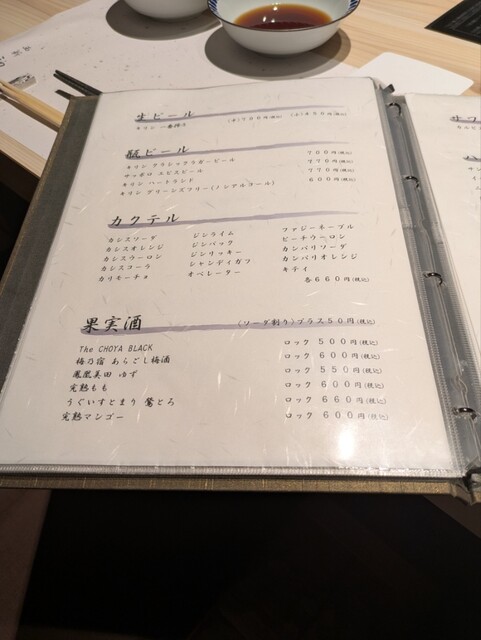 生ビール
キリン 一番搾り (中)700円(税込) (小)450円(税込)
瓶ビール
キリン クラシックラガービール 700円(税込)
サッポロ ヱビスビール 770円(税込)
キリン ハートランド 770円(税込)
キリン グリーンズフリー(ノンアルコール) 600円(税込)
カクテル
カシスソーダ ジンライム ファジーネーブル
カシスオレンジ ジンバック ピーチウーロン
カシスウーロン ジンリッキー カンパリソーダ
カシスコーラ シャンディガフ カンパリオレンジ
カリモーチョ オペレーター キティ
各660円(税込)
果実酒 (ソーダ割り)プラス50円(税込)
The CHOYA BLACK ロック 500円(税込)
梅乃宿 あらごし梅酒 ロック 600円(税込)
鳳凰美田 ゆず ロック 550円(税込)
完熟もも ロック 600円(税込)
うぐいすとまり 鶯とろ ロック 660円(税込)
完熟マンゴー ロック 600円(税込)